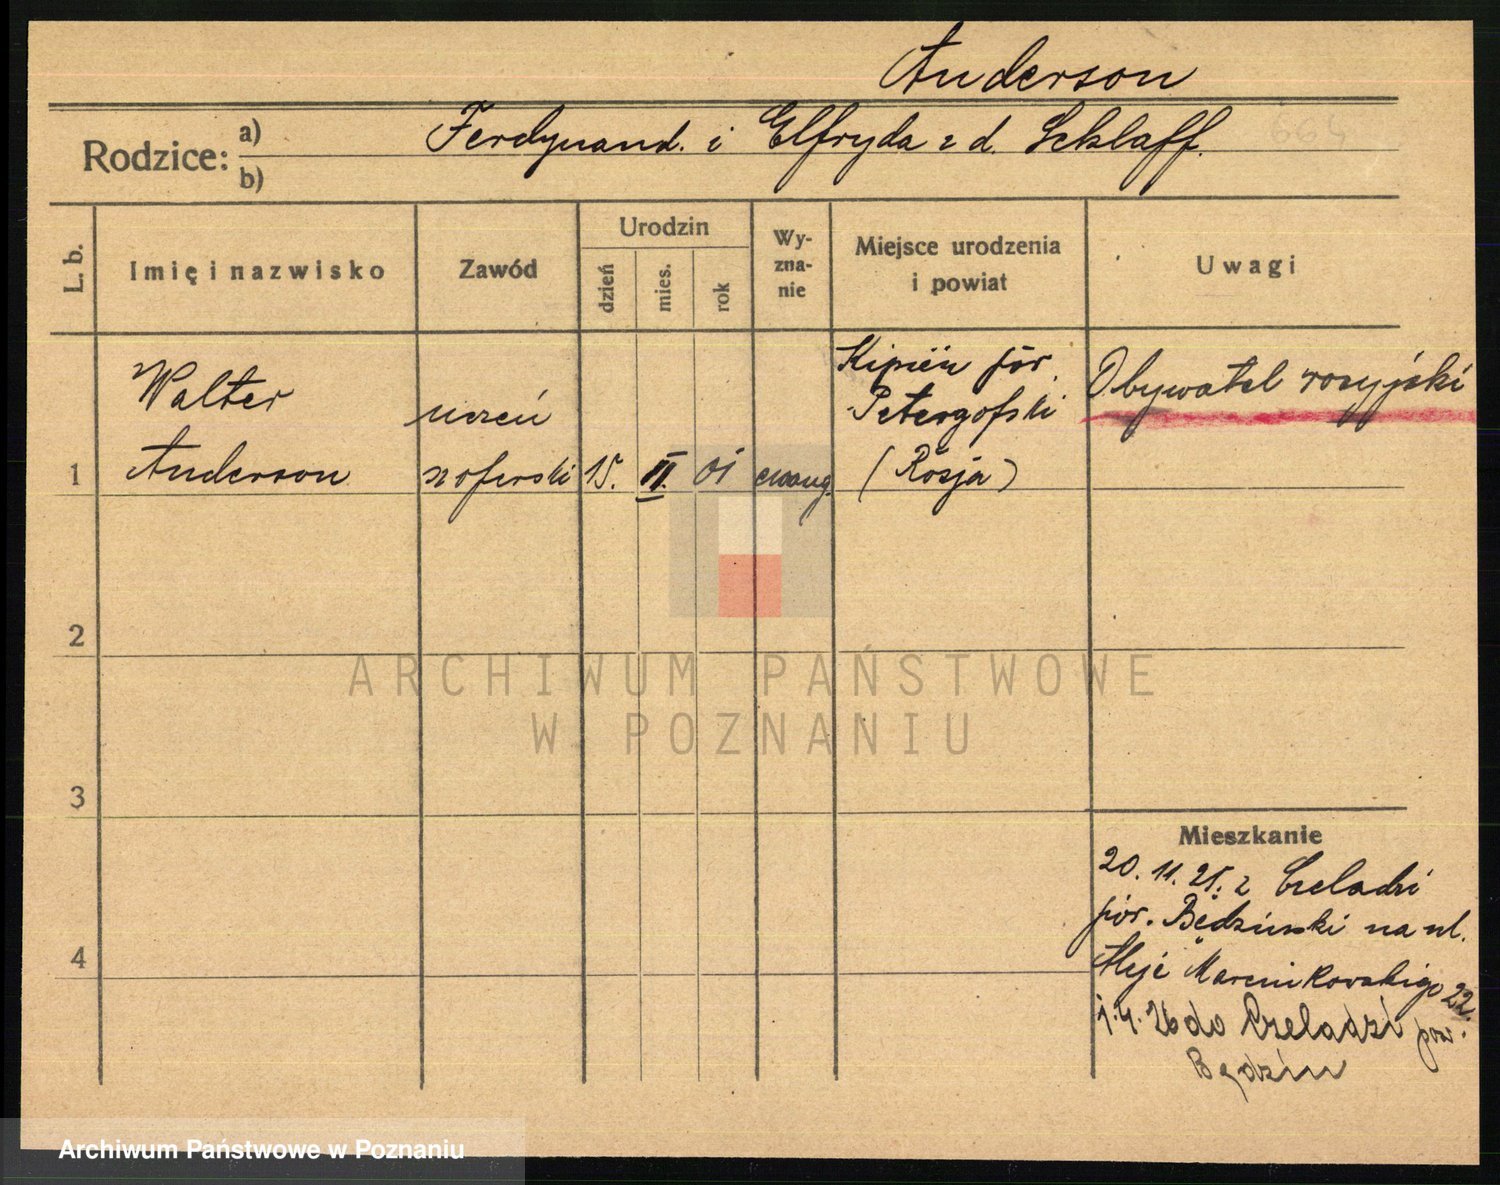 Anderson
Rodzice: a) Ferdynand. i Elfryda z d. Schlaff.
b)
L. b.
Imię i nazwisko
Zawód
Urodzin
dzień
mies.
rok
Wy-
zna-
nie
Miejsce urodzenia
i powiat
Uwagi
1
Walter
Anderson
uczeń
szoferski
15.
II.
01
ewang.
Kipień pow.
Petergofski
(Rosja)
Obywatel rosyjski
2
3
4
Mieszkanie
20. 11. 25. z Czeladzi
pow. Bedzinski na ul.
Aleje Marcinkowskiego 22.
1.4.26 do Czeladzi pow.
Będzin
ARCHIWUM PAŃSTWOWE
W POZNANIU
Archiwum Państwowe w Poznaniu